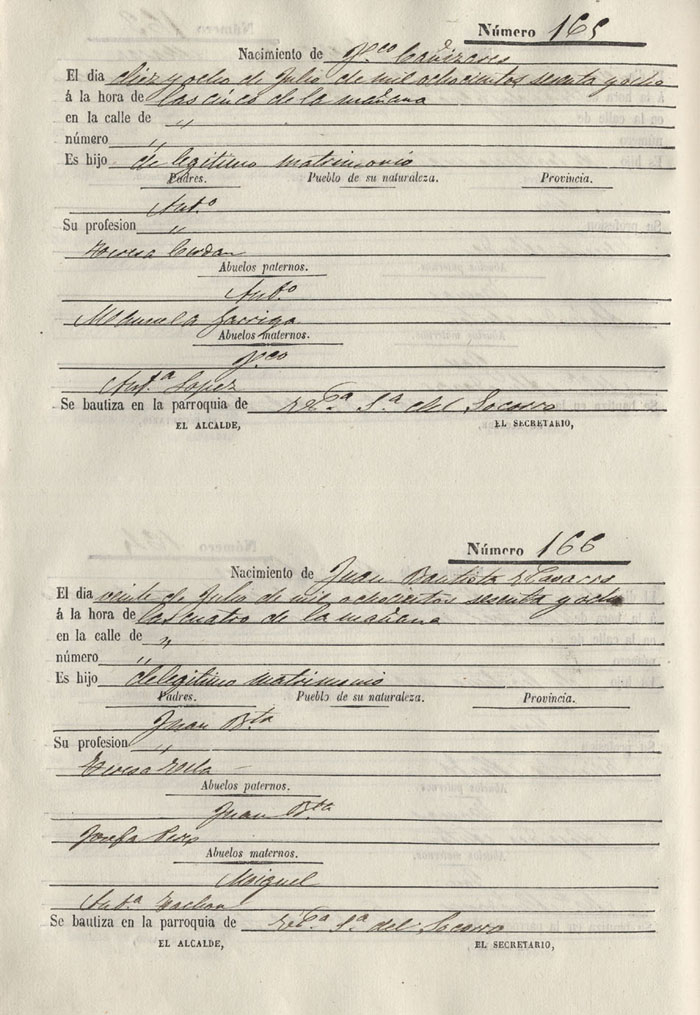 Número 165
Nacimiento de Fco Cañizares
El dia diez y ocho de Julio de mil ochocientos sesenta y ocho
á la hora de las cinco de la mañana
en la calle de "
número "
Es hijo de legitimo matrimonio
Padres. Pueblo de su naturaleza. Provincia.
Anto
Su profesion "
Teresa Cerdan
Abuelos paternos.
Anto
Manuela Garriga
Abuelos maternos.
Fco
Anta Lopez
Se bautiza en la parroquia de Sa del Socorro
EL ALCALDE, EL SECRETARIO,
Número 166
Nacimiento de Juan Bautista
El dia veinte de Julio de mil ochocientos sesenta y ocho
á la hora de las cuatro de la mañana
en la calle de "
número "
Es hijo de legitimo matrimonio
Padres. Pueblo de su naturaleza. Provincia.
Juan Bta
Su profesion "
Teresa
Abuelos paternos.
Juan Bta
Josefa
Abuelos maternos.
Miguel
Anta
Se bautiza en la parroquia de Sa del Socorro
EL ALCALDE, EL SECRETARIO,